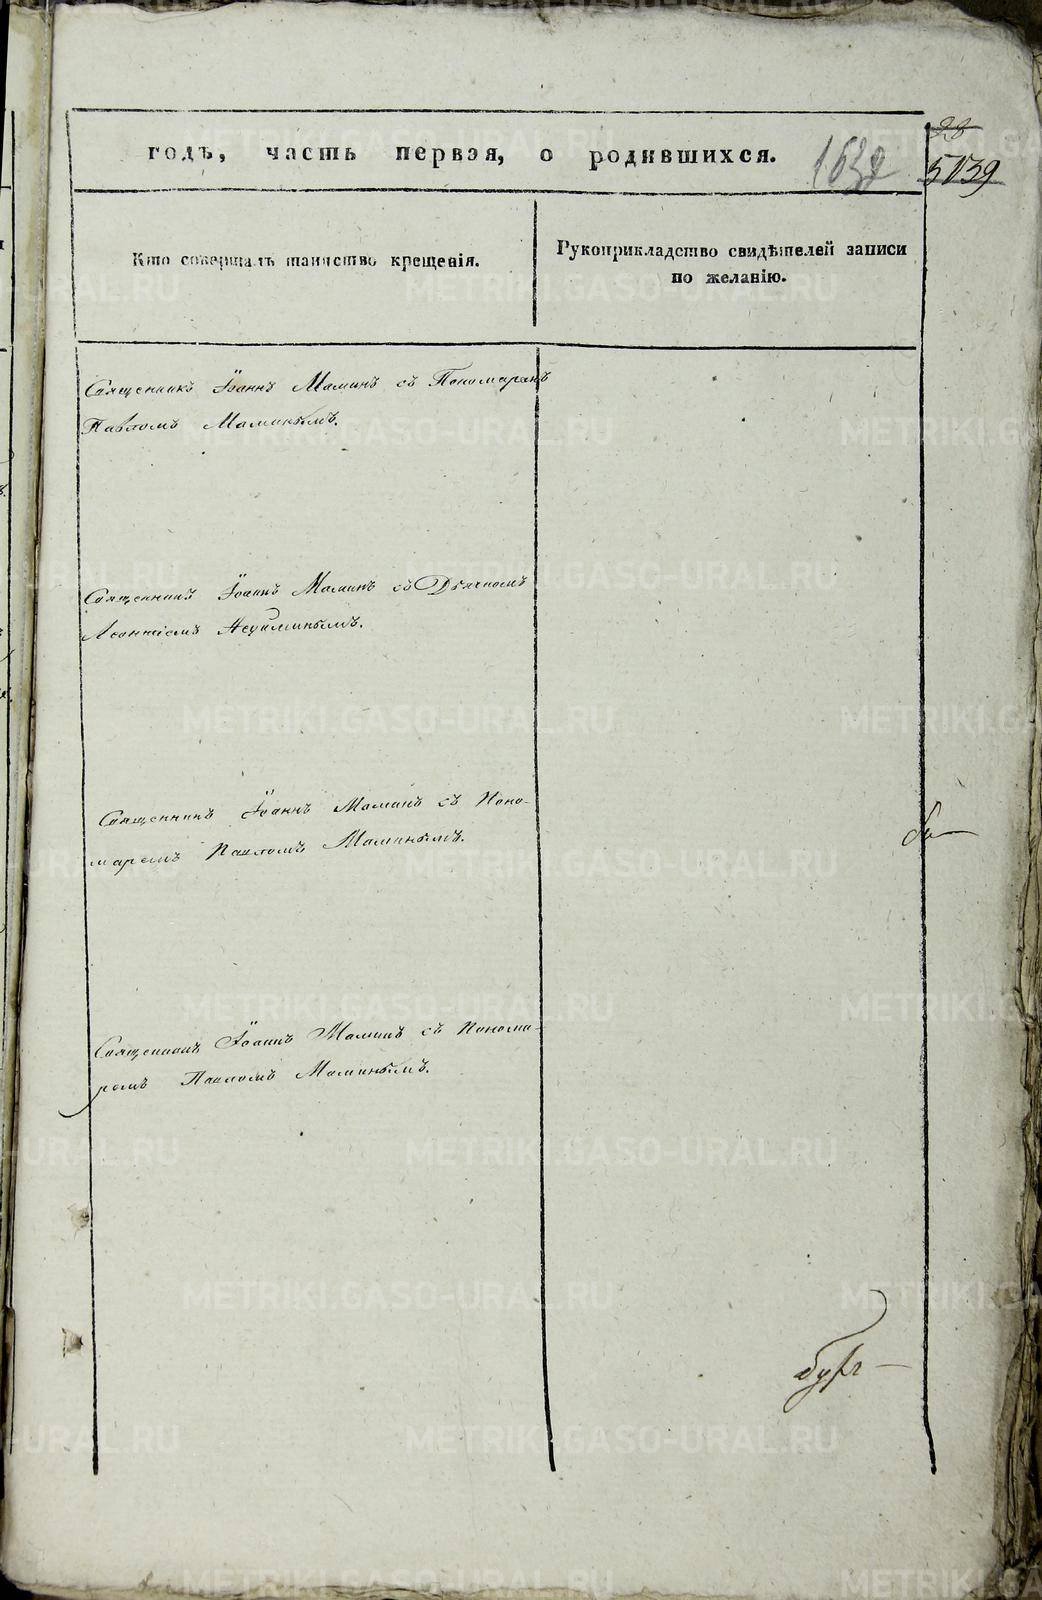 годъ, часть первая, о родившихся.
28
5139
Кто совершалъ таинство крещенія.
Рукоприкладство свидѣтелей записи
по желанію.
Священникъ Іоаннъ Маминъ съ Пономаремъ
Павломъ Маминымъ.
Священникъ Іоаннъ Маминъ съ Дьячкомъ
Леонтіемъ
Священникъ Іоаннъ Маминъ съ Поно-
маремъ Павломъ Маминымъ.
Священникъ Іоаннъ Маминъ съ Понома-
ремъ Павломъ Маминымъ.
METRIKI.GASO-URAL.RU